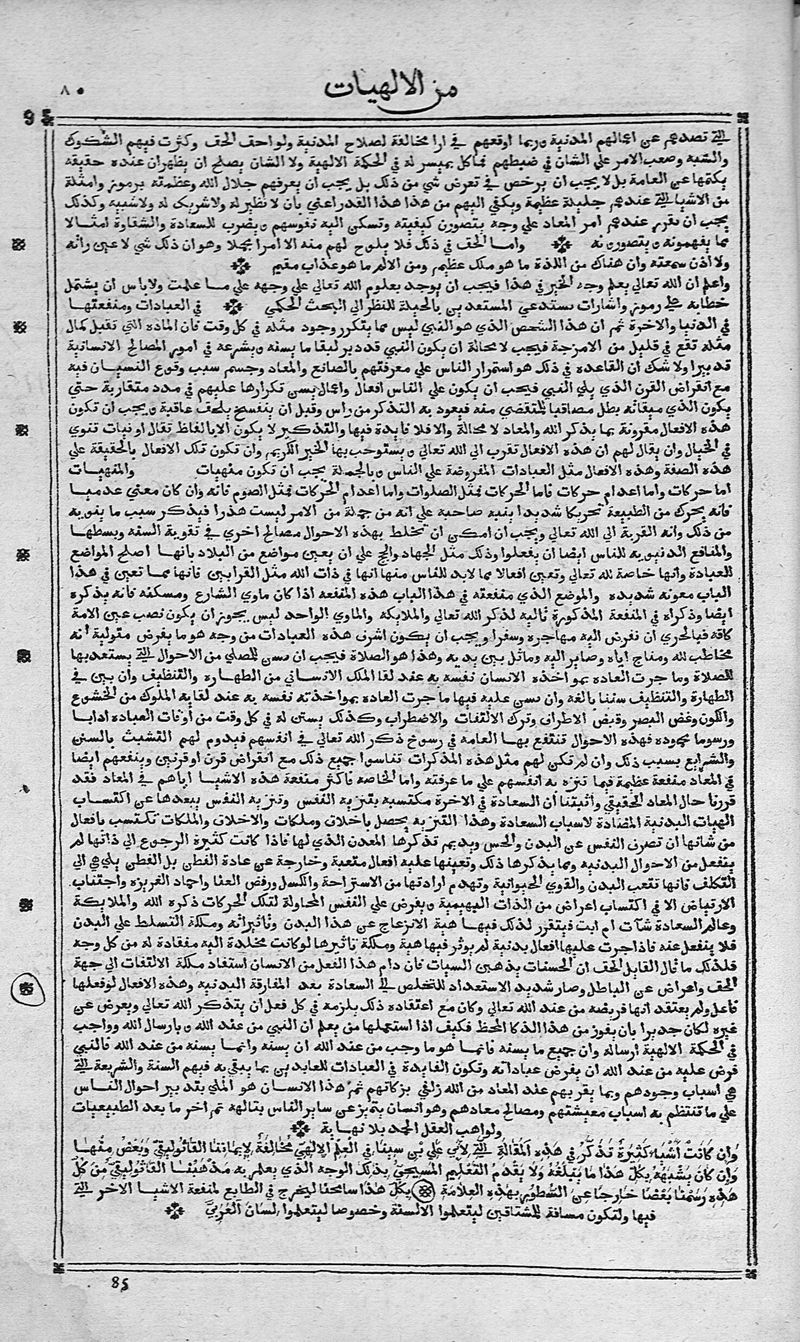 من الالهيات
٨٠
95
التي تصدهم عن اعمالهم المدنية وربما اوقعهم في ارا مخالفة لصلاح المدنية ولواحق الحق وكثرت فيهم الشكوك
والشبه وصعب الامر علي الشان في ضبطهم فما كل بميسر له في الحكمة الالهية ولا الشان يصلح ان يظهر ان عنده حقيقه
يكتمها عن العامة بل لا يجب ان يرخص في تعرض شي من ذلك بل يجب ان يعرفهم جلال الله وعظمته برموز وامثلة
من الاشيا التي عندهم جليلة عظيمة ويلقي اليهم من هذا هذا القدر اعني بان لا نظير له ولا شريك له ولا شبيه وكذلك
يجب ان يقرر عندهم امر المعاد علي وجه يتصورون كيفيته وتسكن اليه نفوسهم ويضرب للسعادة والشقاوة امثالا
مما يفهمونه ويتصورونه واما الحق في ذلك فلا يلوح لهم منه الا امرا مجملا وهو ان ذلك شي لا عين راته
ولا اذن سمعته وان هناك من اللذة ما هو ملك عظيم ومن الالم ما هو عذاب مقيم
واعلم ان الله تعالي يعلم وجه الخير في هذا فيجب ان يوجد معلوم الله تعالي علي وجهه علي ما علمت ولا باس ان يشتمل
خطابه علي رموز واشارات يستدعي المستعدين بالجبلة للنظر الي البحث الحكمي في العبادات ومنفعتها
في الدنيا والاخرة ثم ان هذا الشخص الذي هو النبي ليس مما يتكرر وجود مثله في كل وقت فان الماده التي تقبل كمال
مثله تقع في قليل من الامزجة فيجب لا محالة ان يكون النبي قد دبر لبقا ما يسنه ويشرعه في امور المصالح الانسانية
تدبيرا ولا شك ان القاعده في ذلك هو استمرار الناس علي معرفتهم بالصانع والمعاد وحسم سبب وقوع النسيان فيه
مع انقراض القرن الذي يلي النبي فيجب ان يكون علي الناس افعال واعمال يسن تكرارها عليهم في مدد متقاربة حتي
يكون الذي ميقاته بطل مصاقبا للمتقضي منه فيعود به التذكر من راس وقبل ان ينفسخ يلحق عاقبه ويجب ان تكون
هذه الافعال مقرونة بما يذكر الله والمعاد لا محالة والا فلا فايدة فيها والتذكير لا يكون الا بالفاظ تقال او نيات تنوي
في الخيال وان يقال لهم ان هذه الافعال تقرب الي الله تعالي ويستوجب بها الخير الكريم وان تكون تلك الافعال بالحقيقة علي
هذه الصفة وهذه الافعال مثل العبادات المفروضة علي الناس وبالجملة يجب ان تكون منهيات والمنهيات
اما حركات واما اعدام حركات فاما الحركات فمثل الصلوات واما اعدام الحركات فمثل الصوم فانه وان كان معني عدميا
فانه يحرك من الطبيعة تحريكا شديدا ينبه صاحبه علي انه من جملة من الامر ليست هذرا فيذكر سبب ما ينويه
من ذلك وانه القربة الي الله تعالي ويجب ان امكن ان تخلط بهذه الاحوال مصالح اخري في تقوية السنه وبسطها
والمنافع الدنيويه للناس ايضا ان يفعلوا وذلك مثل الجهاد والحج علي ان يعين مواضع من البلاد بانها اصلح المواضع
للعبادة وانها خاصة لله تعالي وتعين افعالا مما لابد للناس منها انها في ذات الله مثل القرابين فانها مما تعين في هذا
الباب معونه شديده والموضع الذي منفعته في هذا الباب هذه المنفعه اذا كان ماوي الشارع ومسكنه فانه يذكره
ايضا وذكراه في المنفعة المذكورة تاليه لذكر الله تعالي والملايكه والماوي الواحد ليس يجوز ان يكون نصب عين الامة
كافه فبالحري ان نفرض اليه مهاجره وسفرا ويجب ان يكون اشرف هذه العبادات من وجه هو ما يفرض متوليه انه
مخاطب لله ومناج اياه وصاير اليه وماثل بين يديه وهذا هو الصلاة فيجب ان يسن للمصلي من الاحوال التي يستعد بها
للصلاة وما جرت العاده بمواخذه الانسان نفسه به عند لقا الملك الانساني من الطهاره والتنظيف وان يسن في
الطهارة والتنظيف سننا بالغه وان يسن عليه فيها ما جرت العاده بمواخذته نفسه به عند لقايه الملوك من الخشوع
والسكون وغض البصر وقبض الاطراف وترك الالتفات والاضطراب وكذلك يسن له في كل وقت من اوقات العباده ادابا
ورسوما محموده فهذه الاحوال تنتفع بها العامه في رسوخ ذكر الله تعالي في انفسهم فيدوم لهم التشبث بالسنن
والشرايع بسبب ذلك وان لم يكن لهم مثل هذه المذكرات تناسوا جميع ذلك مع انقراض قرن او قرنين وينفعهم ايضا
في المعاد منفعة عظيمة فيما تنزه به انفسهم علي ما عرفته واما الخاصه فاكثر منفعة هذه الاشيا اياهم في المعاد فقد
قررنا حال المعاد الحقيقي واثبتنا ان السعادة في الاخرة مكتسبه بتنزيه النفس وتنزيه النفس يبعدها عن اكتساب
الهيات البدنية المضادة لاسباب السعادة وهذا التنزيه يحصل باخلاق وملكات والاخلاق والملكات تكتسب بافعال
من شانها ان تصرف النفس عن البدن والحس ويديم تذكرها المعدن الذي لها فاذا كانت كثيرة الرجوع الي ذاتها لم
ينفعل من الاحوال البدنيه ومما يذكرها ذلك وتعينها عليه افعال متعبة وخارجة عن عادة الفطن بل الفطن بلي هي الي
التكلف فانها تتعب البدن والقوي الحيوانية وتهدم ارادتها من الاستراحة والكسل ورفض العنا واخماد الغريزه واجتناب
الارتياض الا في اكتساب اعراض من الذات البهيمية ويفرض علي النفس المحاولة لتلك الحركات ذكره الله والملايكة
وعالم السعادة شات ام ابت فيتقرر لذلك فيها هية الانزعاج عن هذا البدن وتاثيراته وملكة التسلط علي البدن
فلا ينفعل عنه فاذا جرت عليها افعال بدنية لم يوثر فيها هية وملكة تاثيرها لو كانت مخلدة اليه منقادة له من كل وجه
فلذلك ما قال القايل الحق ان الحسنات يذهبن السيات فان دام هذا الفعل من الانسان استفاد ملكة الالتفات الي جهة
الحق واعراض عن الباطل وصار شديد الاستعداد للتخلص الي السعادة بعد المفارقة البدنيه وهذه الافعال لو فعلها
فاعل ولم يعتقد انها فريضه من عند الله تعالي وكان مع اعتقاده ذلك يلزمه في كل فعل ان يتذكر الله تعالي ويعرض عن
غيره لكان جديرا بان يفوز من هذا الذكا بحظ فكيف اذا استعملها من يعلم ان النبي من عند الله وبارسال الله وواجب
في الحكمة الالهية ارساله وان جميع ما يسنه فانما هو ما وجب من عند الله ان يسنه وانما يسنه من عند الله فالنبي
فرض عليه من عند الله ان يفرض عباداته وتكون الفايدة في العبادات للعابدين بما يبقي به فيهم السنة والشريعة التي
هي اسباب وجودهم وبما يقربهم عند المعاد من الله زلفي بزكاتهم ثم هذا الانسان هو الملي بتدبير احوال الناس
علي ما تنتظم به اسباب معيشتهم ومصالح معادهم وهو انسان يتميز عن ساير الناس بتالهه تم اخر ما بعد الطبيعيات
ولواهب العقل الحمد بلا نهاية
وان كانت اشياء كثيرة تذكر في هذه المقالة التي لابي علي بن سينا في العلم الالهي مخالفة لايماننا القاثوليقي وبعض منها
وان كان يشبهه بكل هذا ما يبلغه ولا يقدم التعليم المسيحي بذلك الوجه الذي يعلم به مذهبنا القاثوليقي من كل
هذه رسمنا بعضا خارجا عن السطور بهذه العلامة بكل هذا سامحنا ليخرج في الطابع لمنفعة الاشيا الاخر التي
فيها ولتكون مسافة للمشتاقين ليتعلموا الالسنة وخصوصا ليتعلموا لسان العربي
85